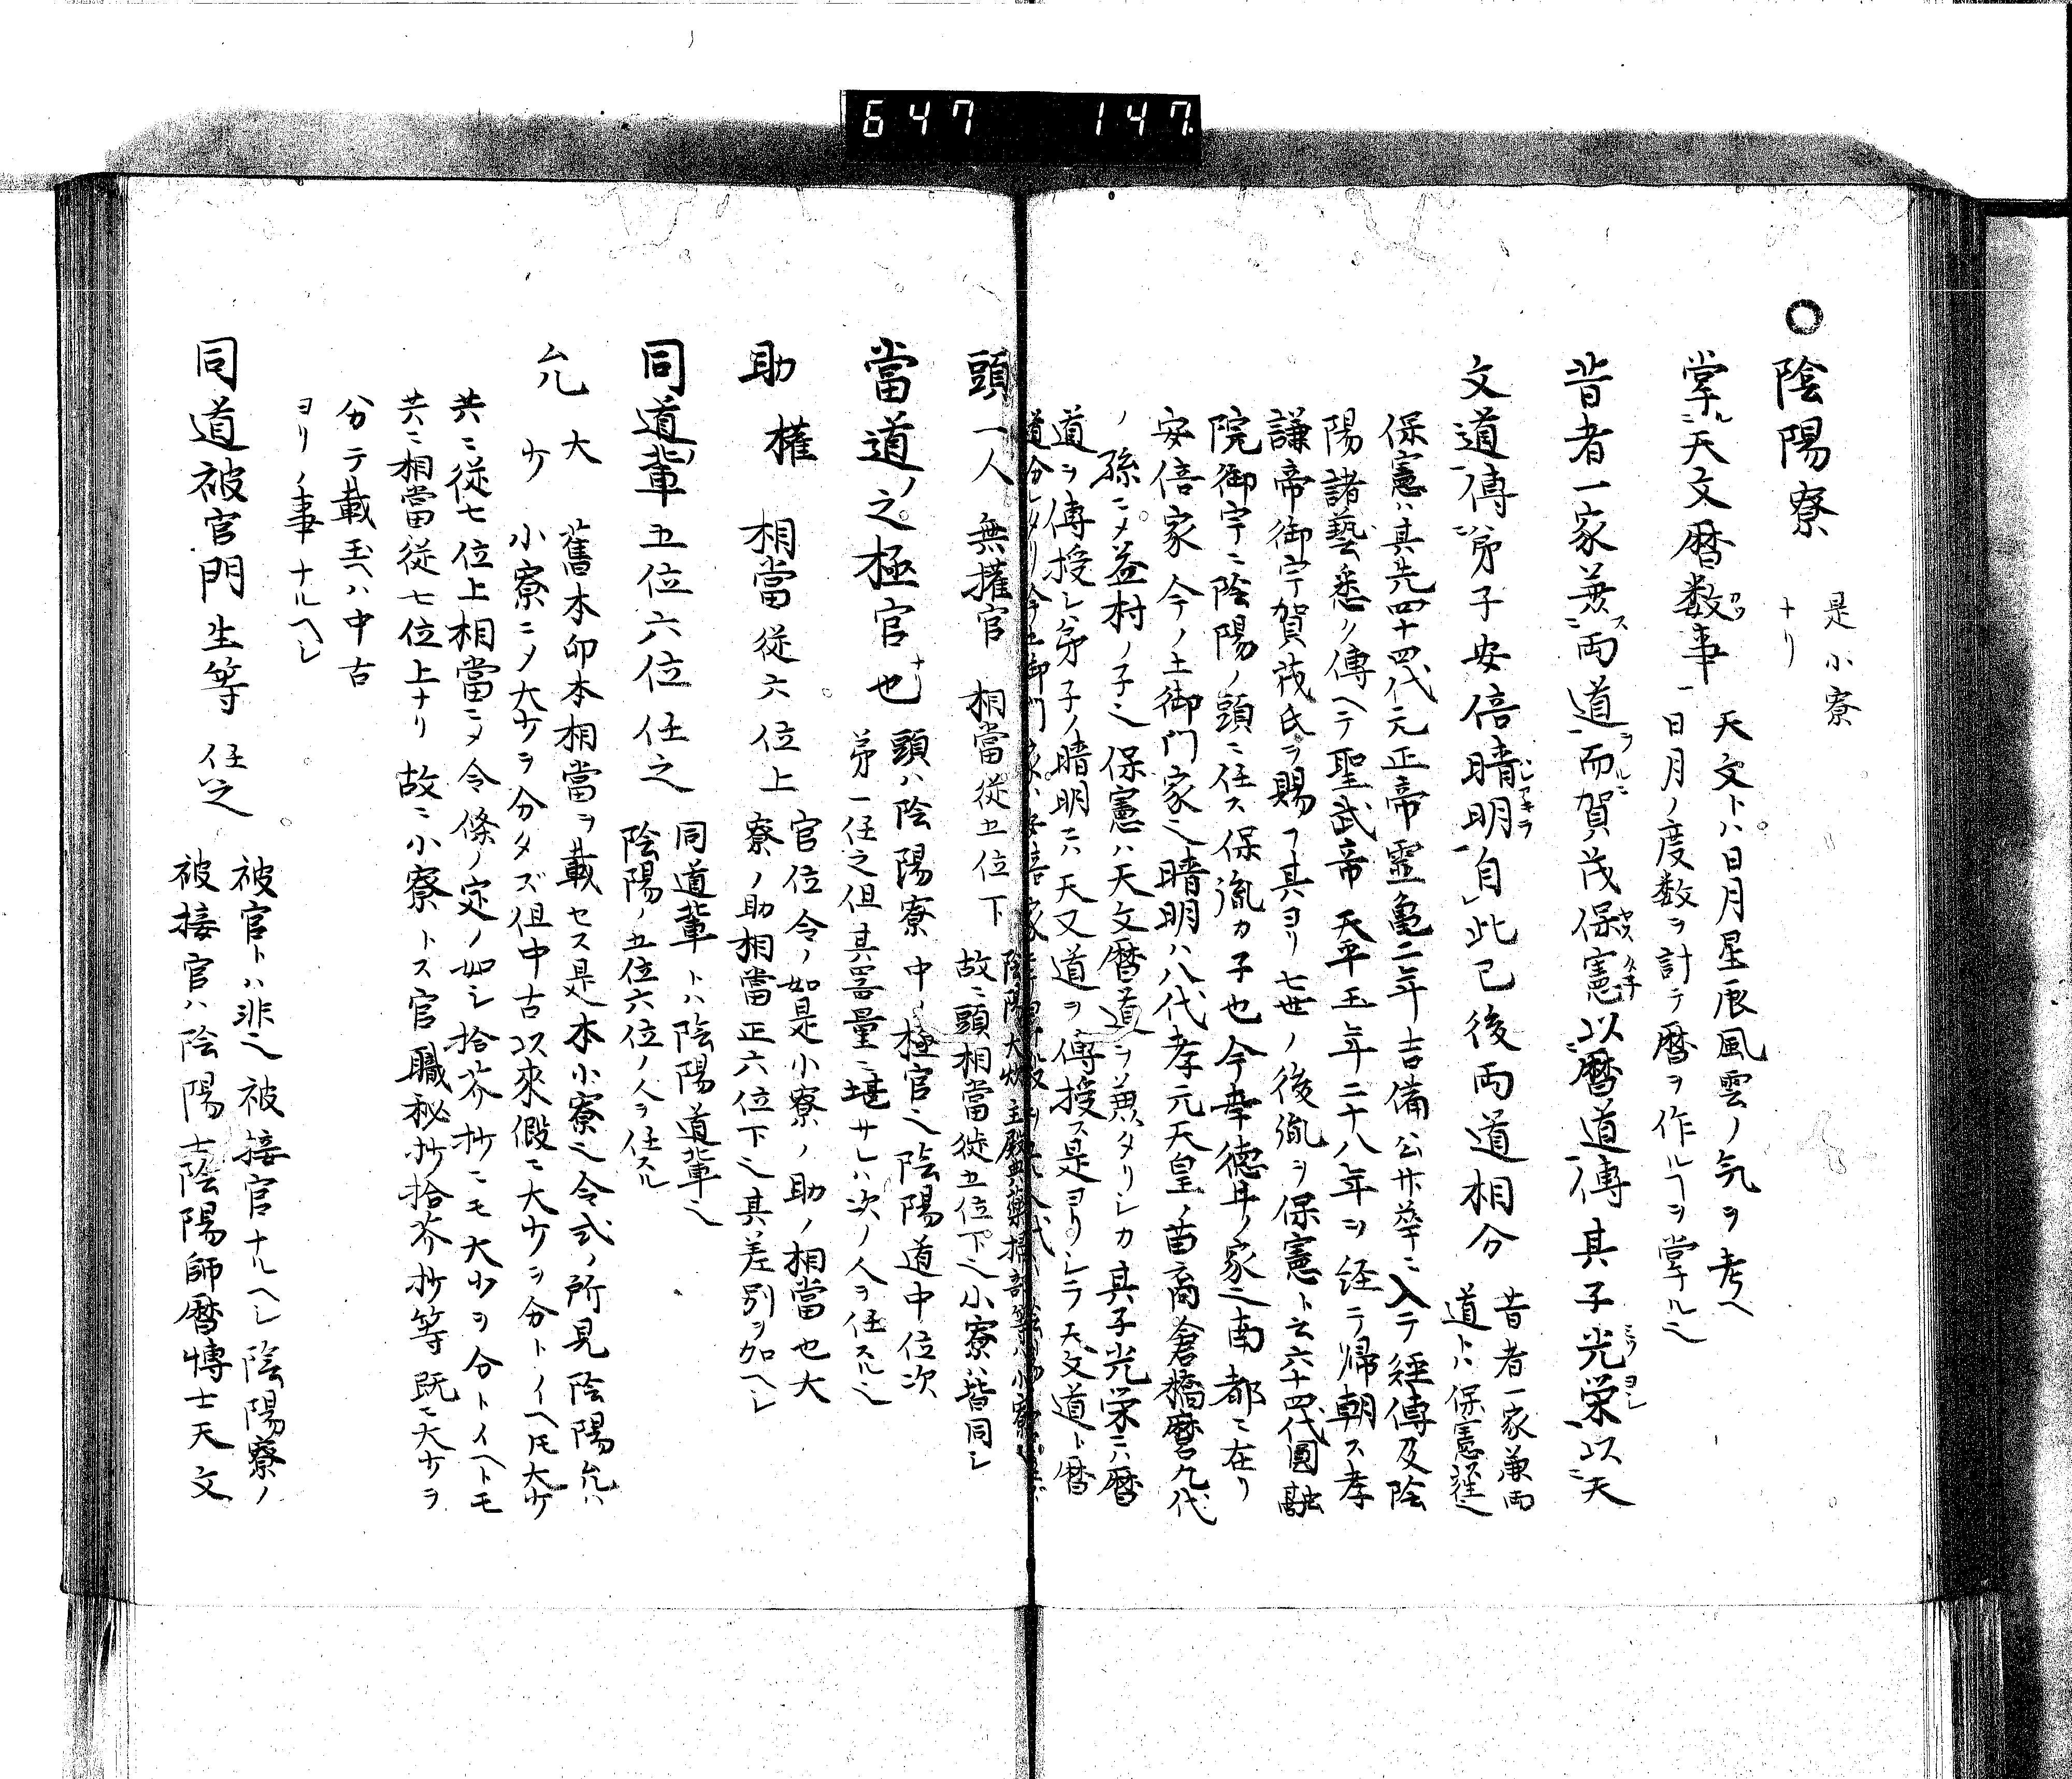 647 147.
○陰陽寮 是小寮
ナリ
掌ル天文暦数事 天文トハ日月星辰風雲ノ気ヲ考ヘ
日月ノ度数ヲ計テ暦ヲ作ルヿヲ掌ル也
昔者一家兼両道而賀茂保憲以暦道傳其子光栄以天
文道傳弟子安倍晴明自此已後両道相分 昔者一家兼両
道トハ保憲迠也
保憲ハ其先四十四代元正帝霊亀二年吉備公廾茟ニ入テ経傳及陰
陽諸藝悉ク傳ヘテ聖武帝天平五年二十八年ヲ経テ帰朝ス孝
謙帝御宇賀茂氏ヲ賜フ其ヨリ七世ノ後胤ヲ保憲ト云六十四代圓融
院御宇ニ陰陽ノ頭ニ任ス保胤カ子也今幸徳井ノ家也南都ニ在リ
安倍家今ノ土御門家也晴明ハ八代孝元天皇ノ苗裔倉橋麿九代
ノ孫ニメ益村ノ子也保憲ハ天文暦道ヲ兼タリシカ其子光栄ニハ暦
道ヲ傳授シ弟子ノ晴明ニハ天文道ヲ傳授ス是ヨリシテ天文道ト暦
道分レタリ今土御門家ハ安倍家
頭一人 無権官 相當従五位下 陰陽大炊主殿典薬掃部等ハ小寮也
故ニ頭相當従五位下也小寮ハ皆同シ
當道ノ之極官也 頭ハ陰陽寮中ノ極官也陰陽道中位次
第一任之但其器量ニ堪サレハ次ノ人ヲ任スル也
助権 相當従六位上 官位令ノ如是小寮ノ助ノ相當也大
寮ノ助相當正六位下也其差別ヲ加ヘシ
同道輩五位六位任之 同道輩トハ陰陽道輩也
陰陽ノ五位六位ノ人ヲ任スル
允大少 舊本卯本相當ヲ載セス是本小寮也令式ノ所見陰陽允ハ
小寮ニメ大少ヲ分タズ但中古以來假ニ大少ヲ分トイヘ𪜈大少
共ニ従七位上相當ニメ令條ノ定ノ如シ拾芥抄ニモ大少ヲ分トイヘトモ
共ニ相當従七位上ナリ故ニ小寮トス官職秘抄拾芥抄等既ニ大少ヲ
分テ載玉ヘハ中古
ヨリノ事ナルヘシ
同道被官門生等任之 被官トハ非也被接官ナルヘシ陰陽寮ノ
被接官ハ陰陽士陰陽師暦博士天文